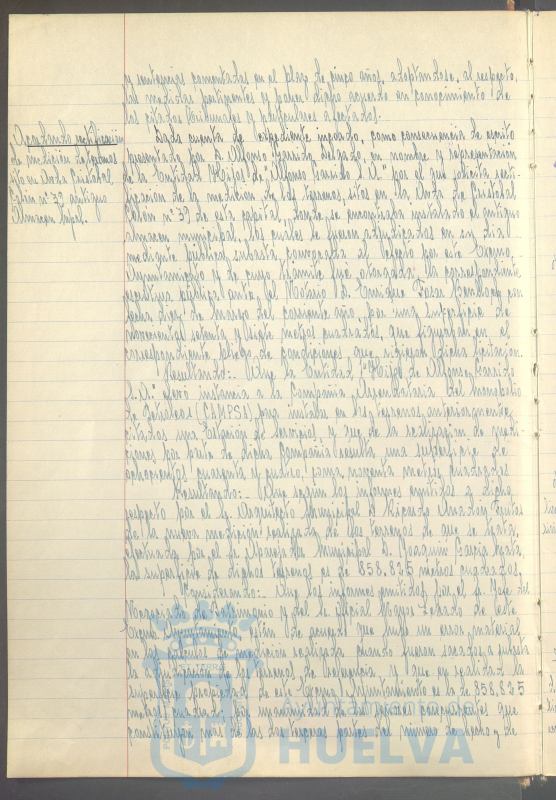 y sentencias comentadas en el plazo de cinco años, adoptándose, al respecto,
las medidas pertinentes y poner dicho acuerdo en conocimiento de
los citados Tribunales y particulares afectados.
Acordando rectificación
de medición de terrenos
sito en Avda Cristobal
Colón nº 39 antiguo
Almacen Mpal.
Dada cuenta de expediente incoado, como consecuencia de escrito
presentado por D. Alfonso Garrido Delgado, en nombre y representación
de la Entidad "Hijos de Alfonso Garrido S. A." por el que solicita recti-
ficación de la medición de los terrenos, sitos en la Avda de Cristobal
Colón nº 39 de esta capital, donde se encontraba instalado el antiguo
almacen municipal, los cuales le fueron adjudicados en su día
mediante pública subasta, convocada al efecto por este Excmo.
Ayuntamiento y de cuyo trámite fué otorgada la correspondiente
escritura pública ante el Notario D. Enrique con
fecha diez de marzo del corriente año, por una superficie de
novecientos setenta y siete metros cuadrados, que figuraban en el
correspondiente pliego de condiciones que rigieron dicha licitación.
Resultando:- Que la Entidad "Hijos de Alfonso Garrido
S.A." elevó instancia a la Compañía Arrendataria del Monopolio
de Petróleos (CAMPSA) para instalar en los terrenos anteriormente
citados una Estación de Servicio y que de la realización de medi-
ciones por parte de dicha Compañía resulta una superficie de
ochocientos cuarenta y cuatro, coma, noventa metros cuadrados
Resultando:- Que según los informes emitidos a dicho
respecto por el Sr. Arquitecto Municipal D. Ricardo Anadón Frutos
de la nueva medición realizada de los terrenos de que se trata,
efectuada por el Sr. Aparejador Municipal D. Joaquín García
la superficie de dichos terrenos es de 858,825 metros cuadrados.
Considerando:- Que los informes emitidos por el Sr. Jefe del
Negociado de Patrimonio y del Sr. Oficial Mayor Letrado de este
Excmo. Ayuntamiento, están de acuerdo que hubo un error material
en los cálculos de medición realizada cuando fueron sacados a subasta
la adjudicación de los terrenos de referencia y que en realidad la
superficie propiedad de este Excmo. Ayuntamiento es la de 858,825
metros cuadrados, por unanimidad de los señores concejales que
constituyen más de las dos terceras partes del número de hecho y de
Ayuntamiento de
HUELVA